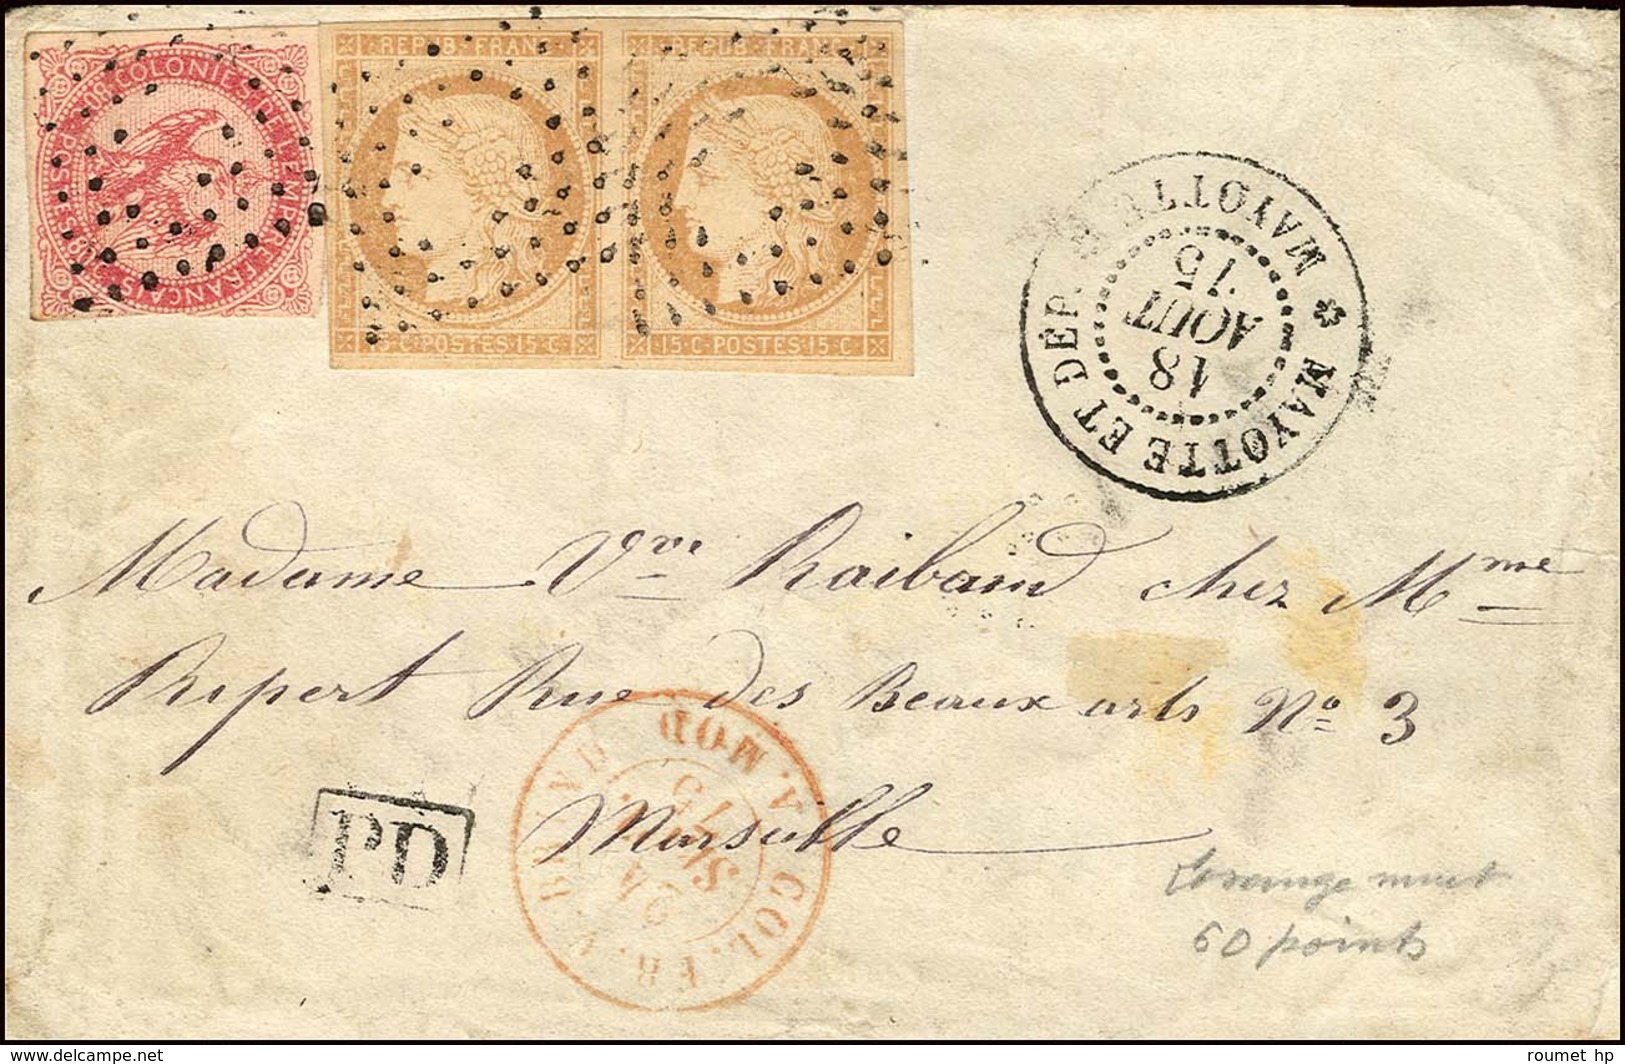 COLONIES DE L'EMPIRE FRANCAIS
POSTES
REPUB. FRANC
REPUB. FRANC
15·C·POSTES·15·C
15·C·POSTES·15·C
MAYOTTE ET DÉP.
MAYOTTE
18
AOUT
75
Madame Vve Raibaud chez Mme
Ripert Rue des Beaux arts No 3
Marseille
PD
COL. FR. V. BRIND A. MOD
24
SEPT
75
Losange muet
60 points
www.delcampe.net
roumet hp